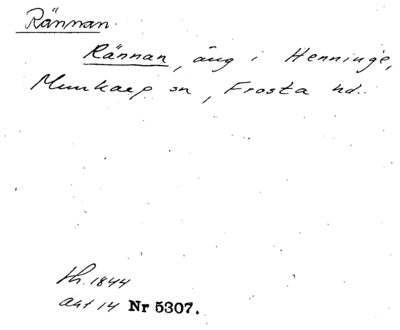 Rännan.
Rännan, äng i Henninge,
Munkarp sn, Frosta hd.
th. 1844
akt 14 Nr 5307.